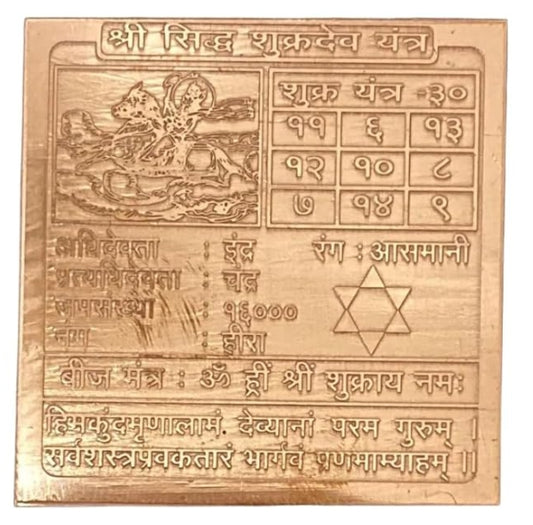 श्री सिद्ध शुक्रदेव यंत्र
शुक्र यंत्र -३०
११ ६ १३
१२ १० ८
७ १४ ९
अधिदेवता : इंद्र रंग : आसमानी
प्रत्यधिदेवता : चंद्र
जपसंख्या : १६०००
नग : हीरा
बीज मंत्र : ॐ ह्रीं श्रीं शुक्राय नमः
हिमकुंदमृणालामं देव्यानां परम गुरुम् ।
सर्वशस्त्रप्रवक्तारं भार्गवं प्रणमाम्याहम् ॥